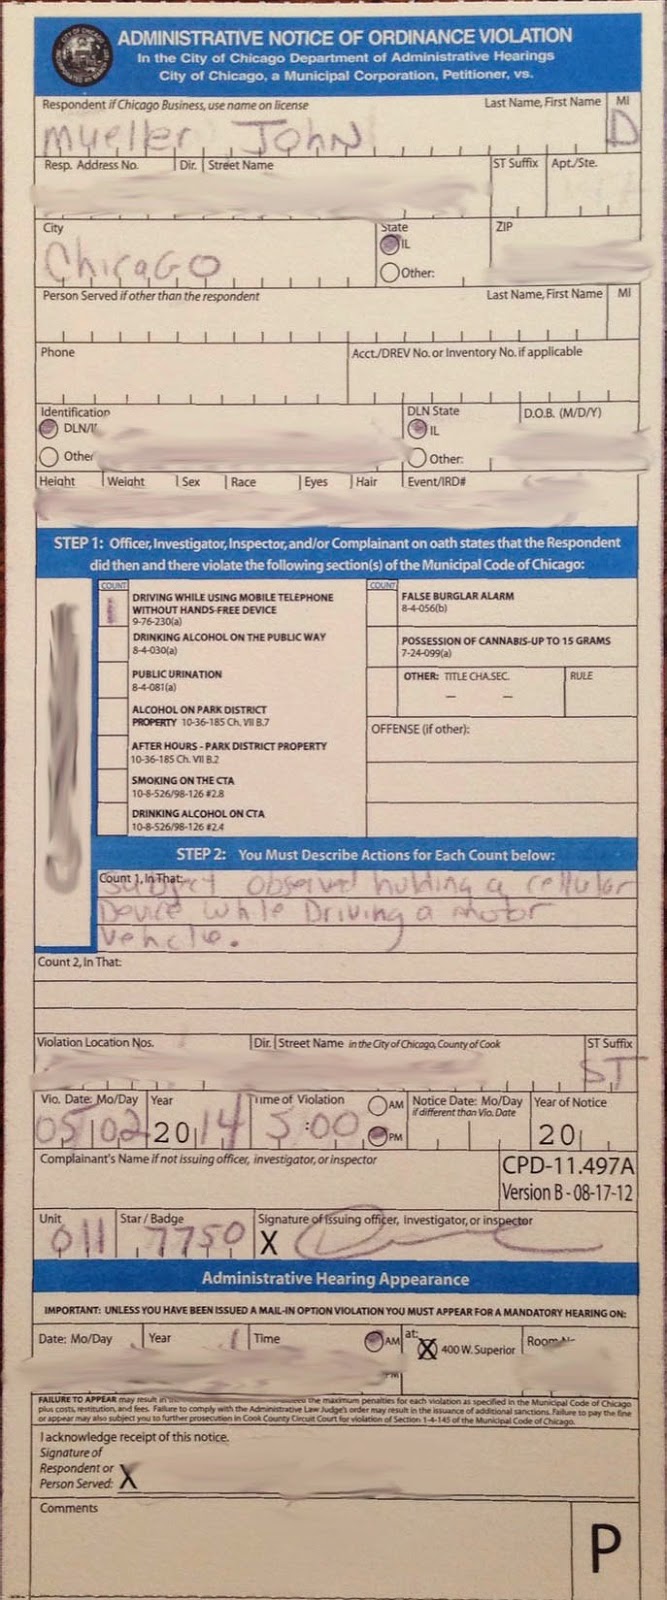 ADMINISTRATIVE NOTICE OF ORDINANCE VIOLATION
In the City of Chicago Department of Administrative Hearings
City of Chicago, a Municipal Corporation, Petitioner, vs.
Respondent if Chicago Business, use name on license Last Name, First Name MI
Mueller John D
Resp. Address No. Dir. Street Name ST Suffix Apt./Ste.
City State ZIP
Chicago IL
Other:
Person Served if other than the respondent Last Name, First Name MI
Phone Acct./DREV No. or Inventory No. if applicable
Identification DLN State D.O.B. (M/D/Y)
DLN/ IL
Other Other:
Height Weight Sex Race Eyes Hair Event/IRD#
STEP 1: Officer, Investigator, Inspector, and/or Complainant on oath states that the Respondent
did then and there violate the following section(s) of the Municipal Code of Chicago:
COUNT
DRIVING WHILE USING MOBILE TELEPHONE
WITHOUT HANDS-FREE DEVICE
9-76-230(a)
DRINKING ALCOHOL ON THE PUBLIC WAY
8-4-030(a)
PUBLIC URINATION
8-4-081(a)
ALCOHOL ON PARK DISTRICT
PROPERTY 10-36-185 Ch. VII B.7
AFTER HOURS - PARK DISTRICT PROPERTY
10-36-185 Ch. VII B.2
SMOKING ON THE CTA
10-8-526/98-126 #2.8
DRINKING ALCOHOL ON CTA
10-8-526/98-126 #2.4
COUNT
FALSE BURGLAR ALARM
8-4-056(b)
POSSESSION OF CANNABIS-UP TO 15 GRAMS
7-24-099(a)
OTHER: TITLE CHA.SEC. RULE
– –
OFFENSE (if other):
STEP 2: You Must Describe Actions for Each Count below:
Count 1, In That:
Subject observed holding a cellular
Device while Driving a motor
vehicle.
Count 2, In That:
Violation Location Nos. Dir. Street Name in the City of Chicago, County of Cook ST Suffix
ST
Vio. Date: Mo/Day Year Time of Violation AM Notice Date: Mo/Day Year of Notice
if different than Vio. Date
05 02 2014 5:00 PM 20
Complainant's Name if not issuing officer, investigator, or inspector
CPD-11.497A
Version B - 08-17-12
Unit Star / Badge Signature of issuing officer, Investigator, or inspector
011 7750 X
Administrative Hearing Appearance
IMPORTANT: UNLESS YOU HAVE BEEN ISSUED A MAIL-IN OPTION VIOLATION YOU MUST APPEAR FOR A MANDATORY HEARING ON:
Date: Mo/Day Year Time AM at: X 400 W. Superior Room
PM
FAILURE TO APPEAR may result in the maximum penalties for each violation as specified in the Municipal Code of Chicago
plus costs, restitution, and fees. Failure to comply with the Administrative Law Judge's order may result in the issuance of additional sanctions. Failure to pay the fine
or appear may also subject you to further prosecution in Cook County Circuit Court for violation of Section 1-4-145 of the Municipal Code of Chicago.
I acknowledge receipt of this notice.
Signature of
Respondent or
Person Served: X
Comments
P